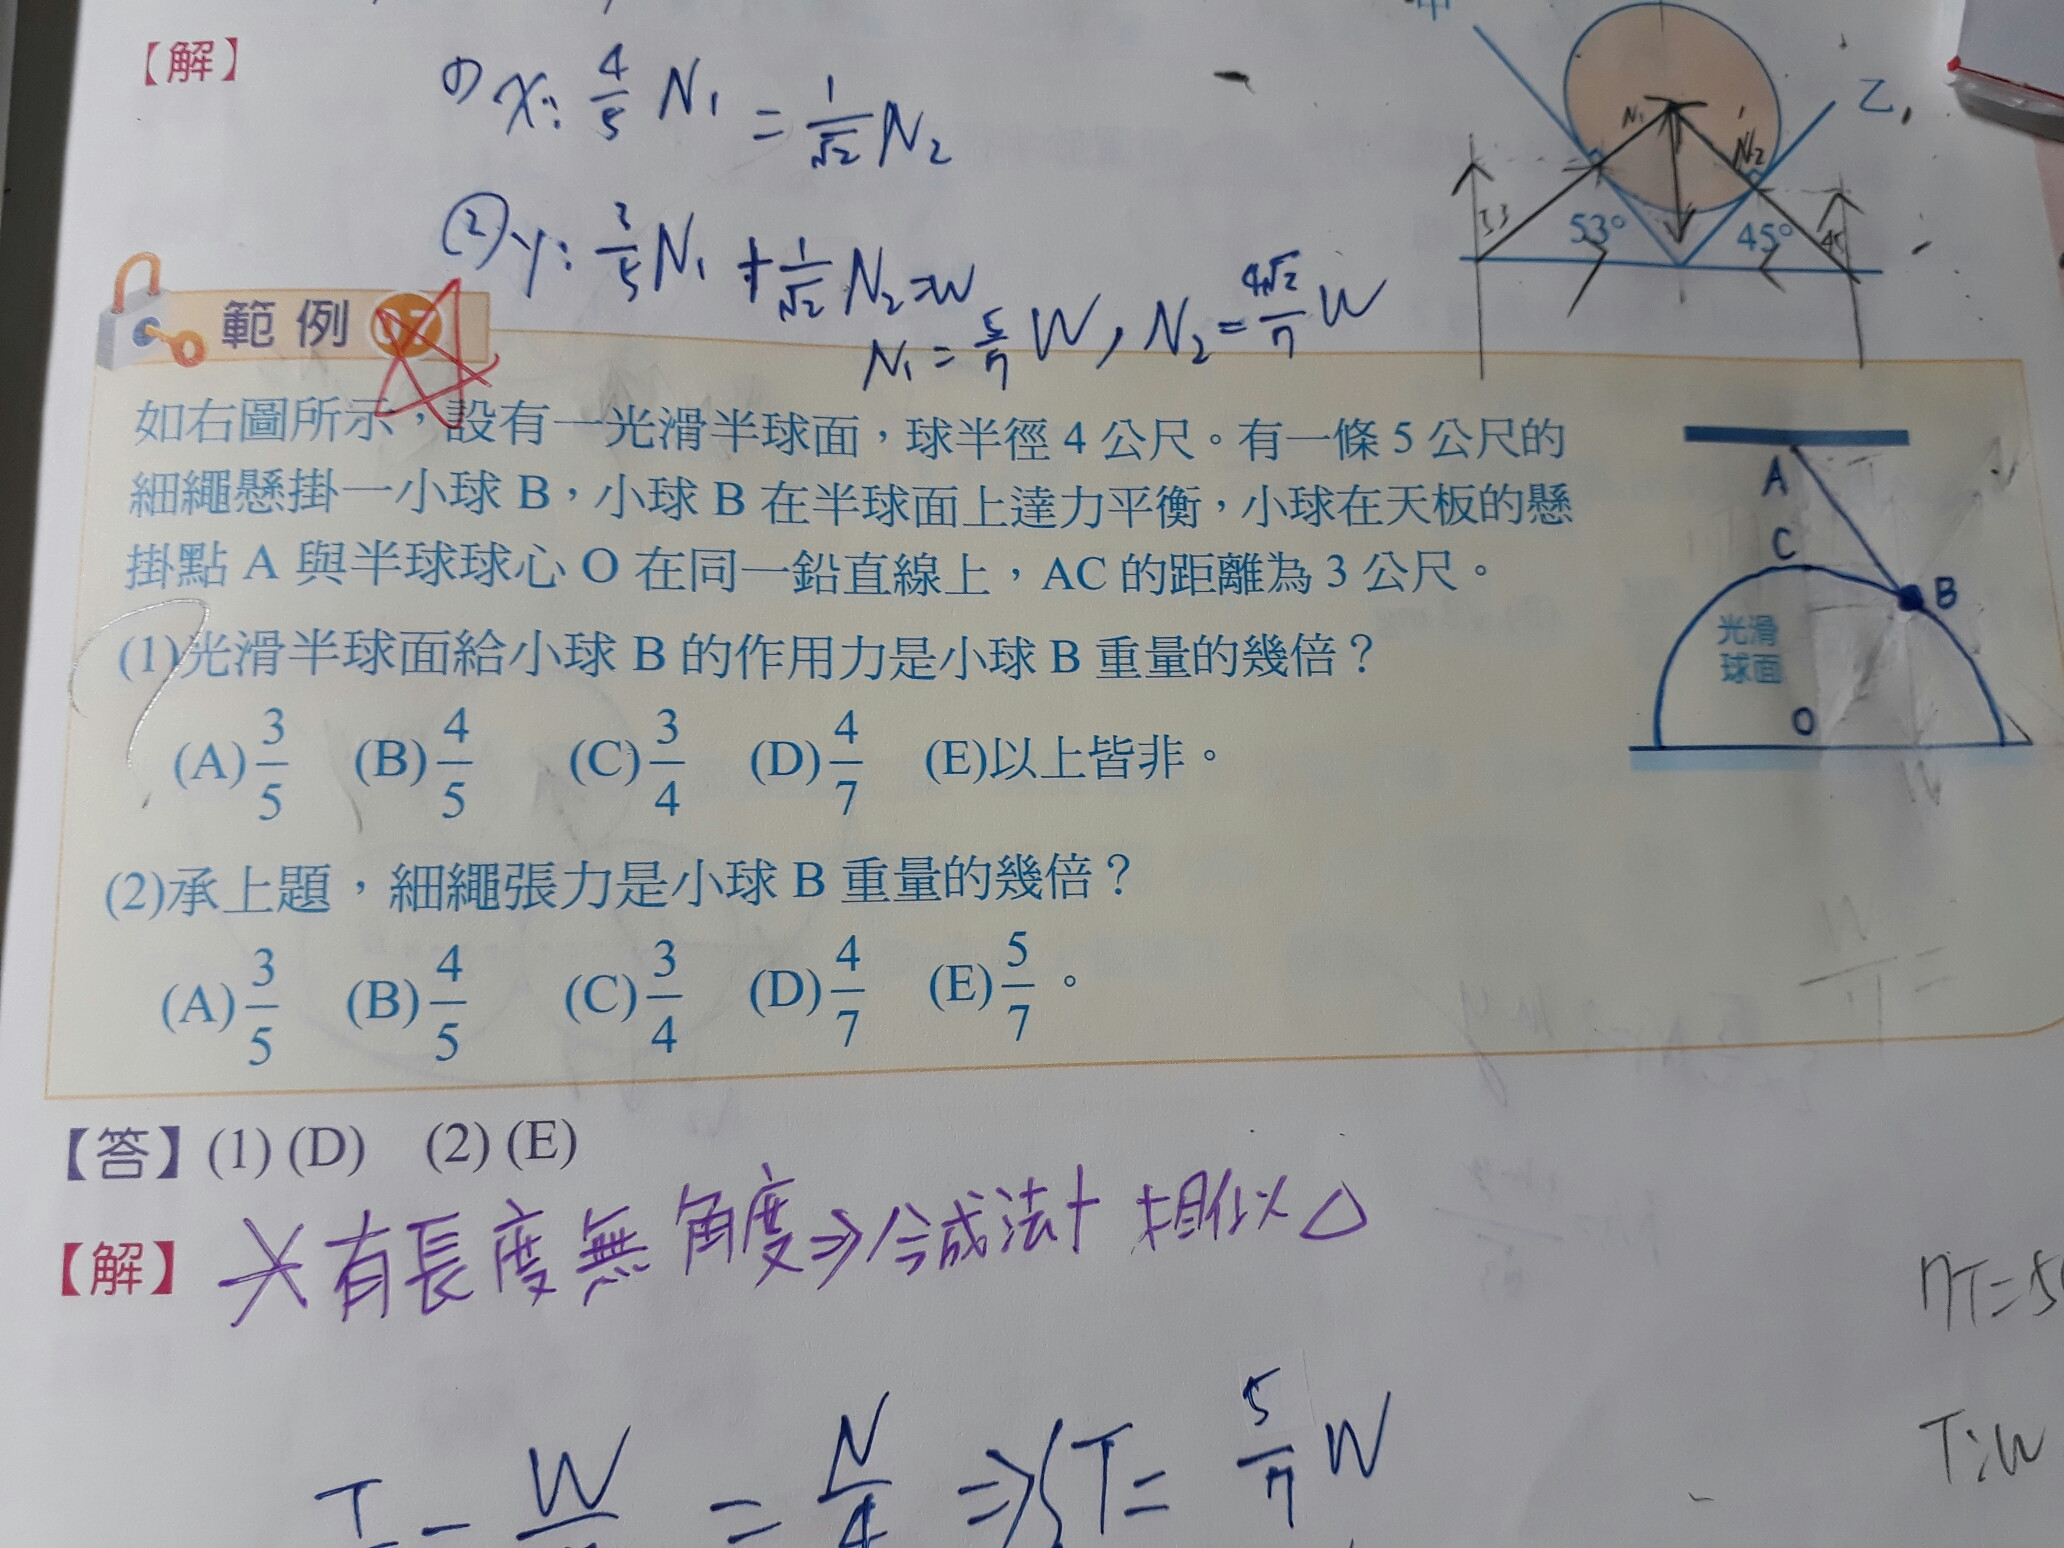 甲
【解】
① x: 4/5 N₁ = 1/√2 N₂
乙
N₁
N₂
53
53°
45°
45
② y: 3/5 N₁ + 1/√2 N₂ = W
N₁ = 5/7 W, N₂ = 4√2/7 W
範例
如右圖所示，設有一光滑半球面，球半徑 4 公尺。有一條 5 公尺的
細繩懸掛一小球 B，小球 B 在半球面上達力平衡，小球在天板的懸
掛點 A 與半球球心 O 在同一鉛直線上，AC 的距離為 3 公尺。
(1)光滑半球面給小球 B 的作用力是小球 B 重量的幾倍？
(A) 3/5 (B) 4/5 (C) 3/4 (D) 4/7 (E)以上皆非。
(2)承上題，細繩張力是小球 B 重量的幾倍？
(A) 3/5 (B) 4/5 (C) 3/4 (D) 4/7 (E) 5/7。
A
C
B
光滑
球面
O
【答】(1) (D) (2) (E)
【解】只有長度無角度⇒合成法+相似△
7T=5
T:W
W
= N/4 ⇒{T= 5/7 W